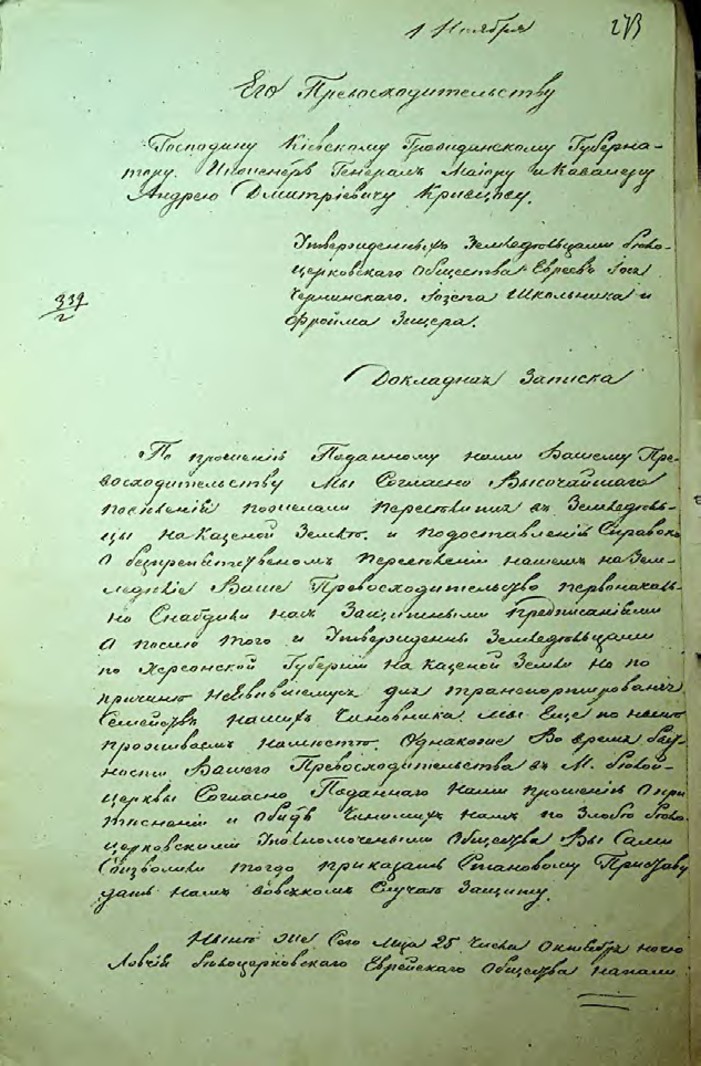 1 Ноября 273
Его Превосходительству
Господину Кіевскому Гражданскому Губерна-
тору. Инженеръ Генералъ Маіору и Кавалеру
Андрею Дмитріевичу Кривцову.
Утвержденныхъ Земледѣльцами бѣло-
церковскаго Общества Евреевъ Іося
Чернинскаго, Іозепа Школьника и
Фройма Зицера.
339
2
Докладная Записка
По прошенію Поданному нами Вашему Пре-
восходительству Мы Согласно Высочайшаго
пожелали переселится въ Земледѣль-
цы на Казеной Землѣ. и по доставленій Справокъ
О безпрепятственомъ переселеніи нашемъ на Зем-
ледѣліе Ваше Превосходительство первоначаль-
но Снабдили насъ Защитными предписаніями
А послѣ того и Утверждены Земледѣльцами
по Херсонской Губерній на казеной Земли но по
причинѣ неявившемуся для транспортированія
Семействъ нашихъ Чиновника, мы Еще по нынѣ
проживаемъ на мѣстѣ. Однакоже Во время быт-
ности Вашего Превосходительства въ М. бѣлой-
церквы Согласно Поданнаго Нами прошенія О при
тѣсненіи и Обидъ Чинимыхъ намъ по Злобѣ бѣло-
церковскими Уполномочеными Общества Вы Сами
Соизволили тогда приказать Становому Приставу
дать намъ вовсякомъ Случаѣ Защиту.
Нынѣ же Сего М-ца 25 Числа Октября ночю
Ловчій бѣлоцерковскаго Еврейскаго Общества напали